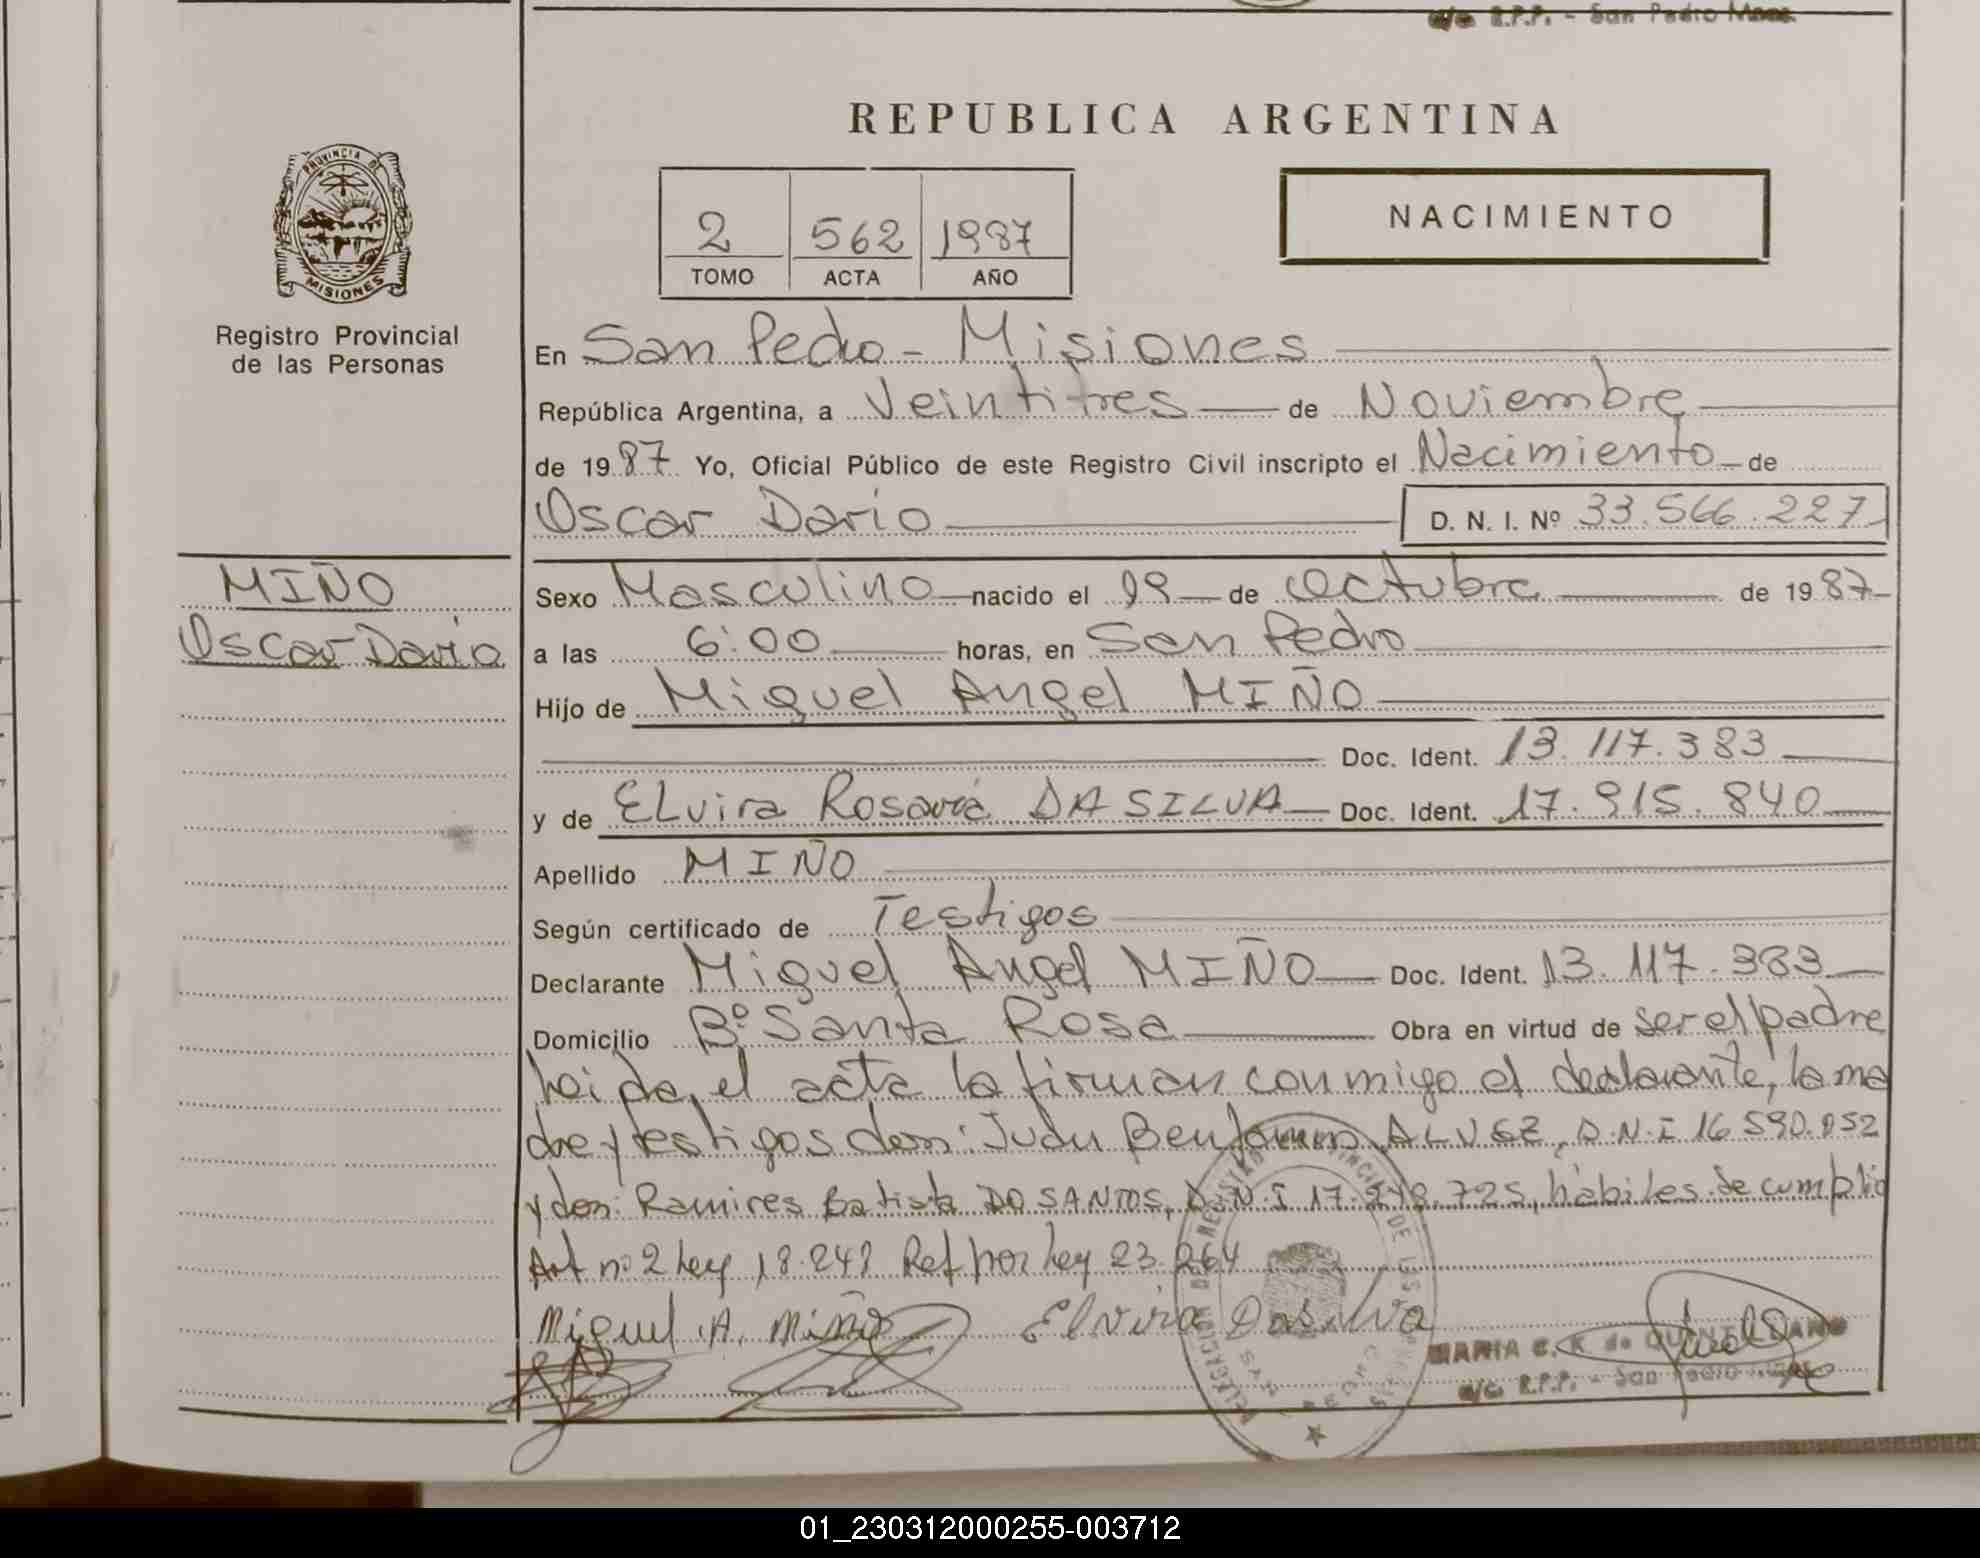 a/c R.P.P. - San Pedro Mnes.
REPUBLICA ARGENTINA
PROVINCIA DE
MISIONES
Registro Provincial
de las Personas
2 562 1987
TOMO ACTA AÑO
NACIMIENTO
En San Pedro - Misiones
República Argentina, a Veintitres de Noviembre
de 1987 Yo, Oficial Público de este Registro Civil inscripto el Nacimiento de
Oscar Dario D. N. I. Nº 33.566.227
MIÑO
Oscar Dario
Sexo Masculino nacido el 19 de Octubre de 1987
a las 6:00 horas, en San Pedro
Hijo de Miguel Angel MIÑO
Doc. Ident. 13.117.383
y de ELvira Rosaria DA SILVA Doc. Ident. 17.915.840
Apellido MIÑO
Según certificado de Testigos
Declarante Miguel Angel MIÑO Doc. Ident. 13.117.383
Domicilio Bº Santa Rosa Obra en virtud de ser el padre
leida el acta la firman conmigo el declarante, la ma
dre y testigos don: Juan Benjamin ALVEZ, D.N.I 16.590.052
y don: Ramires Batista DO SANTOS, D.N.I 17.218.725, habiles. Se cumplio
Art nº 2 Ley 18.248 Ref por Ley 23.264
Miguel A. Miño Elvira Dasilva
MARIA C. K. de QUINTANA
a/c. R.P.P. - San Pedro
01_230312000255-003712